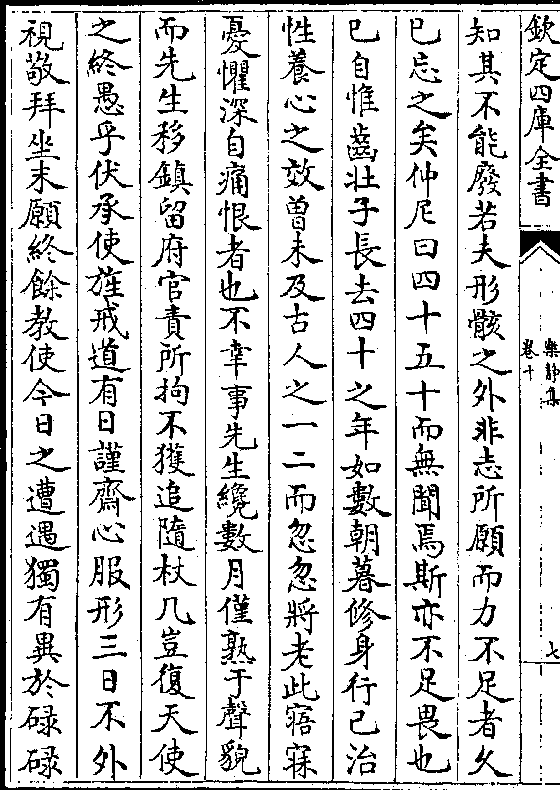 欽定四庫全書
樂靜集
卷十
七
知其不能廢若夫形骸之外非志所願而力不足者久
已忘之矣仲尼曰四十五十而無聞焉斯亦不足畏也
已自惟齒壯子長去四十之年如數朝暮修身行已治
性養心之效曽未及古人之一二而忽忽將老此寤寐
憂懼深自痛恨者也不幸事先生纔數月僅熟于聲貌
而先生移鎮留府官責所拘不獲追隨杖几豈復天使
之終愚乎伏承使旌戒道有日謹齋心服形三日不外
視敬拜坐末願終餘教使今日之遭遇獨有異於碌碌